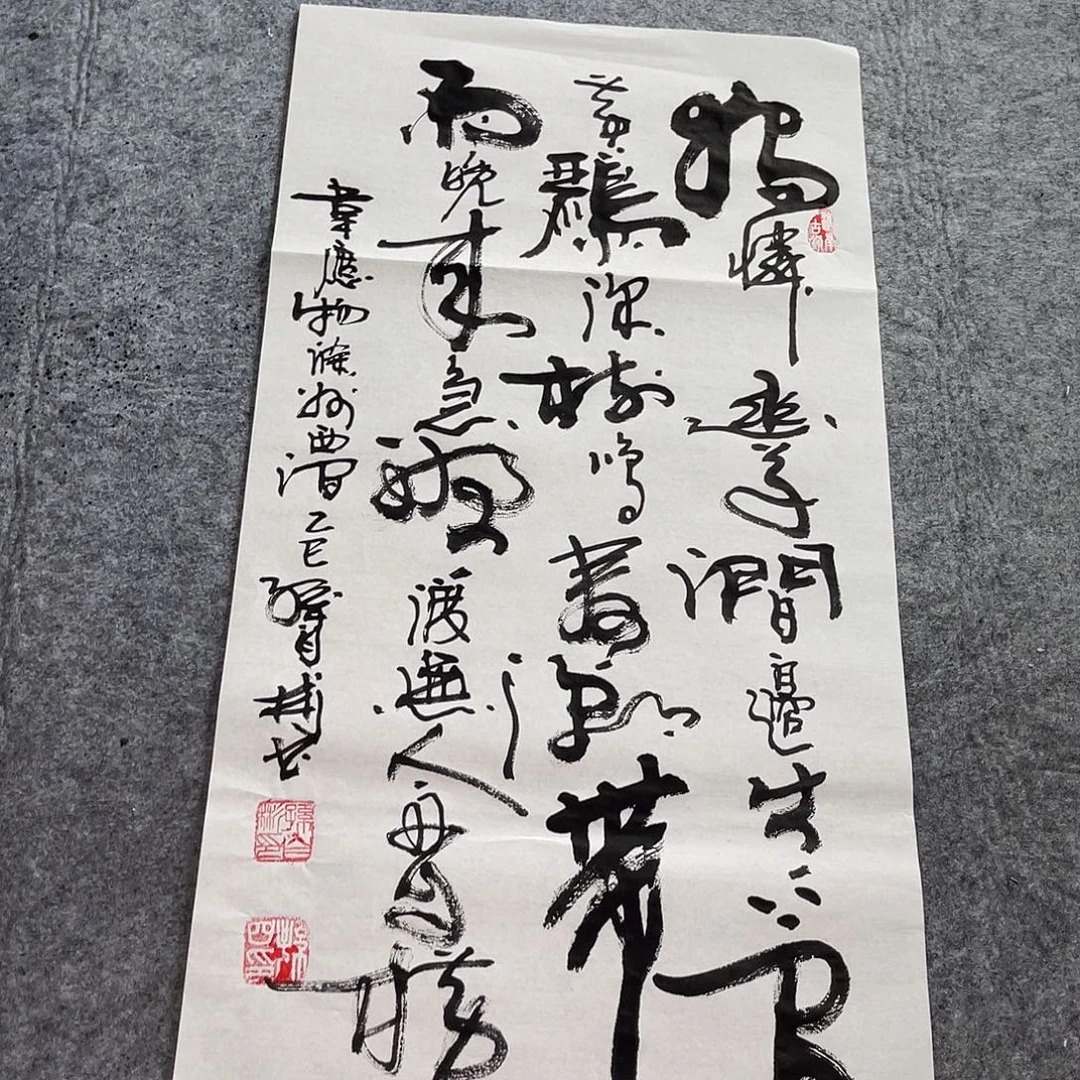 獨憐幽草澗邊生上有
黃鸝深樹鳴春潮帶
雨晚來急野渡無人舟自橫
韋應物滁州西澗乙巳